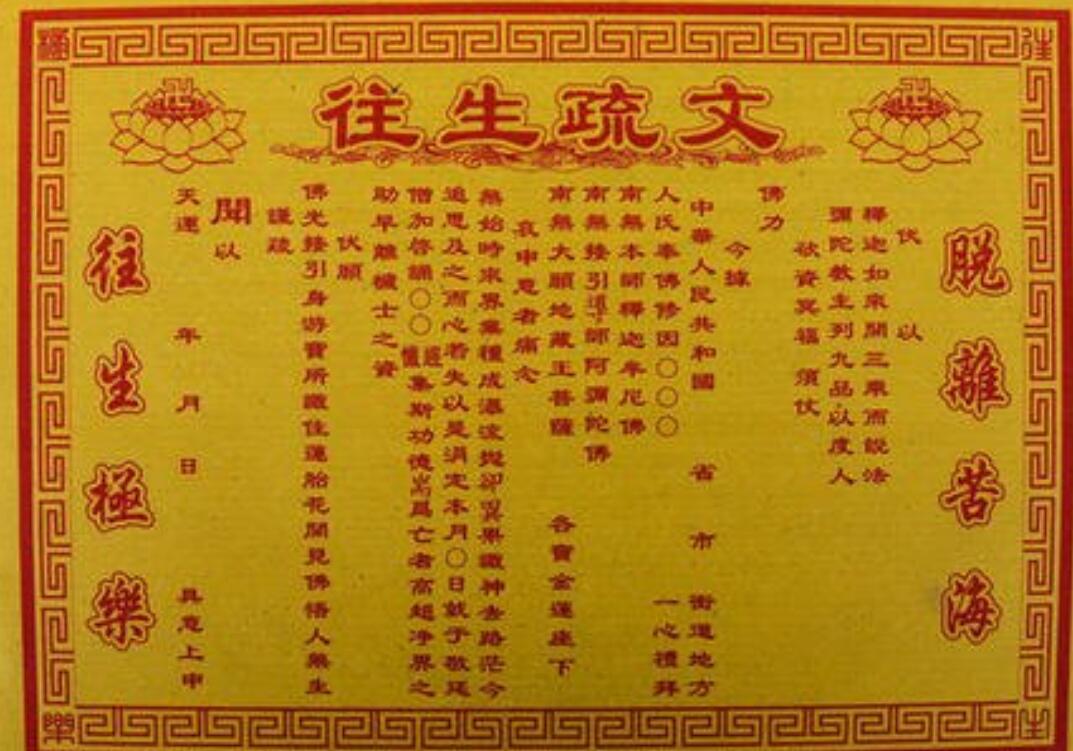 往生疏文
脫離苦海
伏 以
釋迦如來開三乘而說法
彌陀教主列九品以度人
欲資冥福 須仗
佛力
今據
中華人民共和國 省 市 街道地方
人氏奉佛修因〇〇〇 一心禮拜
南無本師釋迦牟尼佛
南無接引導師阿彌陀佛
南無大願地藏王菩薩 各寶金蓮座下
哀申意者痛念
無始時來界業種成瀑流異界識神去路茫今
追思及之而心若失以是涓定本月〇日就于敬延
僧加啓誦〇〇經懺集斯功德耑爲亡者高超淨界之
助早離穢土之資
伏願
佛光接引身游寶所識住蓮胎花開見佛悟人無生
謹疏
聞以
天運 年 月 日 具意上申
往生極樂